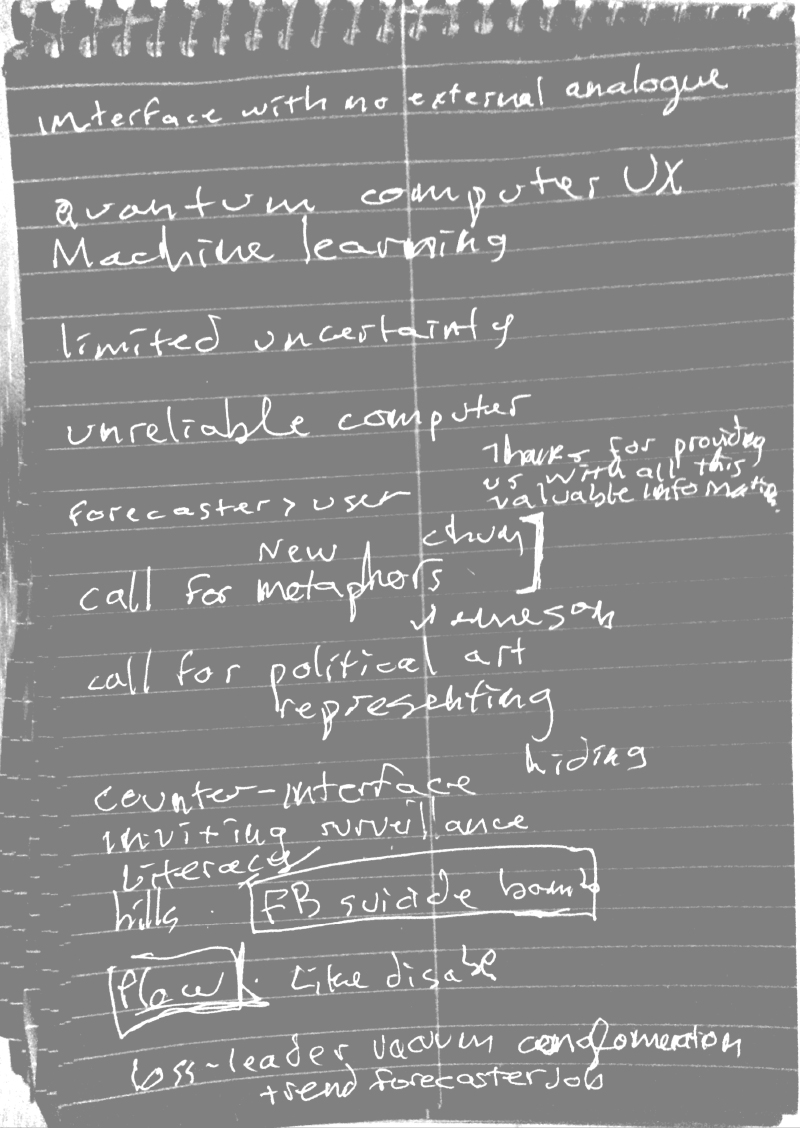 interface with no external analogue
quantum computer UX
Machine learning
limited uncertainty
unreliable computer
Thanks for providing
us with all this
valuable information
forecaster > user
New chun]
call for metaphors
Jameson
call for political art
representing
hiding
counter-interface
inviting surveillance
literacy
hills FB suicide bomb
Place Like disable
loss-leader vacuum conglomeration
trend forecaster job